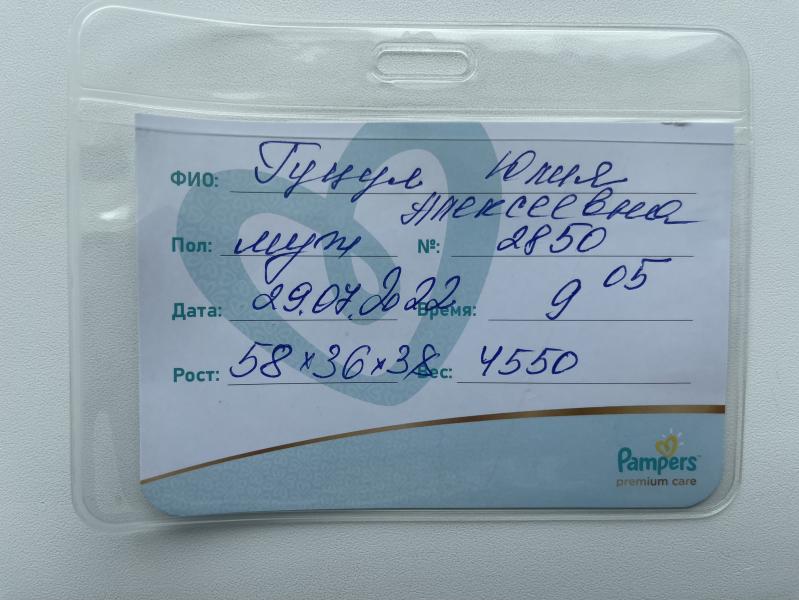 ФИО: Гуцул Юлия
Алексеевна
Пол: муж №: 2850
Дата: 29.07.2022 Время: 9 05
Рост: 58×36×38 Вес: 4550
Pampers
premium care